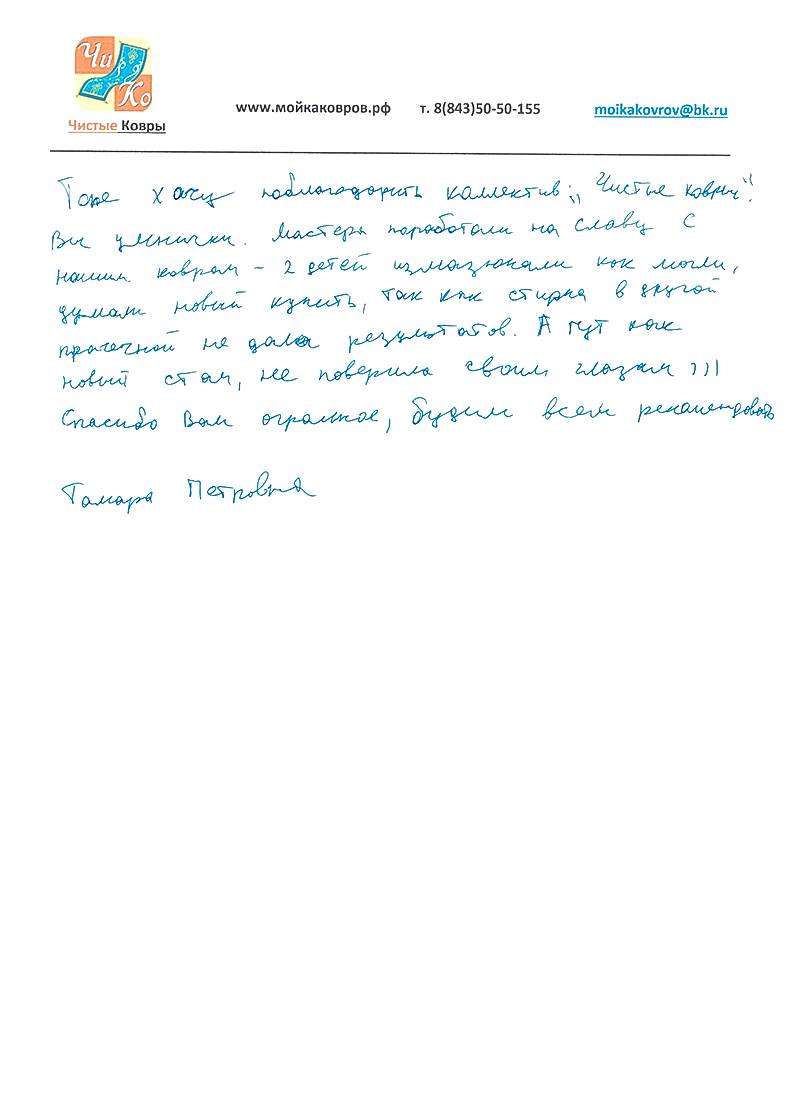 Чи
Ко
Чистые Ковры
www.мойкаковров.рф т. 8(843)50-50-155 moikakovrov@bk.ru
Тоже хочу поблагодорить каллектив: „Чистые ковры".
Вы умнички. Мастера поработали на славу с
нашим ковром – 2 детей измазюкали как могли,
думали новый купить, так как стирка в другой
прачечной не дала результатов. А тут как
новый стал, не поверила своим глазам )))
Спасибо Вам огромное, будим всем рекомендовать
Тамара Петровна